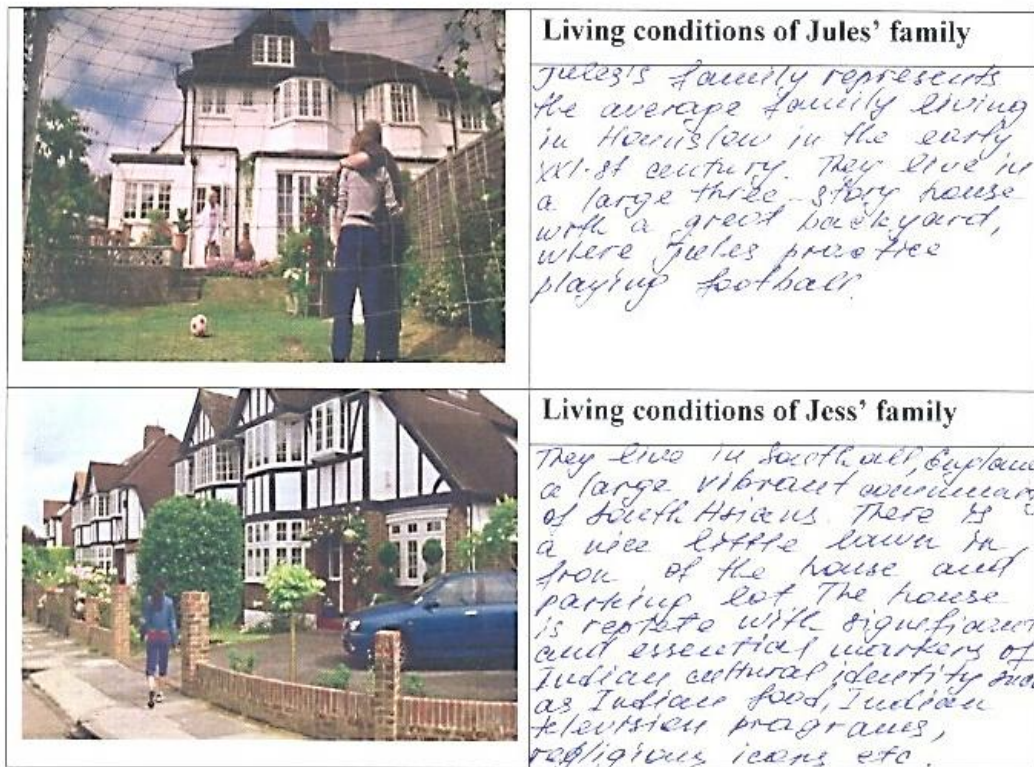 Living conditions of Jules' family
Jules's family represents
the average family living
in Hounslow in the early
XXI-st century. They live in
a large three-story house
with a great backyard,
where Jules practice
playing football.
Living conditions of Jess' family
They live in Southall, England
a large vibrant
of South Asians. There is
a nice little lawn in
fron of the house and
parking lot. The house
is replete with significant
and essential markers of
Indian cultural identity such
as Indian food, Indian
television programs,
religious icons etc.